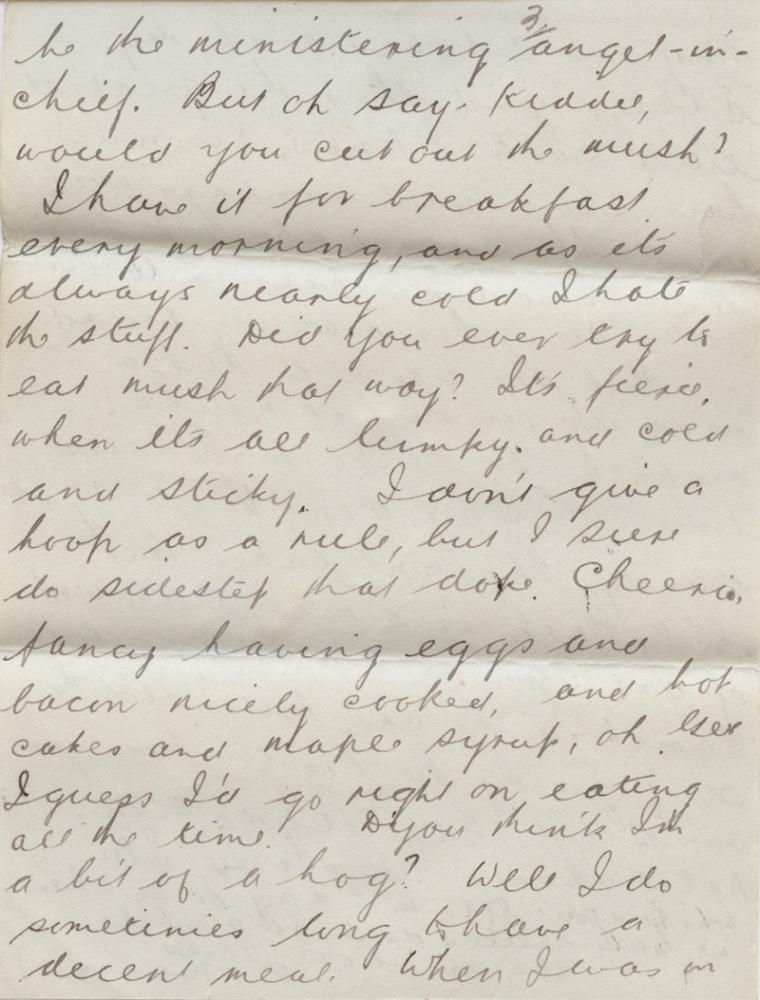 3/
be the ministering angel-in-
chief. But oh say. Kiddie,
would you cut out the mush?
I have it for breakfast
every morning, and as its
always nearly cold I hate
the stuff. Did you ever try to
eat mush that way? It's fierce,
when its all lumpy. and cold
and sticky. I don't give a
hoop as a rule, but I sure
do sidestep that dope. Cheerio,
fancy having eggs and
bacon nicely cooked, and hot
cakes and maple syrup, oh Gee
I guess I'd go right on eating
all the time. D'you think I'm
a bit of a hog? Well I do
sometimes long to have a
decent meal. When I was in